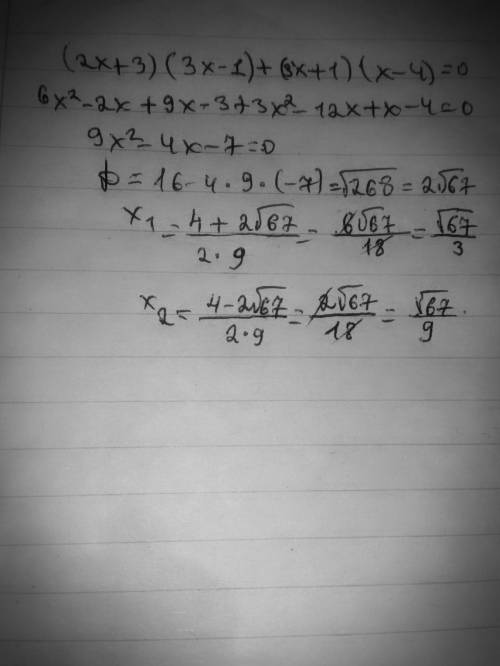 (2x+3)(3x-1)+(3x+1)(x-4)=0
6x²-2x+9x-3+3x²-12x+x-4=0
9x²-4x-7=0
D=16-4·9·(-7)=√268=2√67
x₁=(4+2√67)/(2·9)=6√67/18=√67/3
x₂=(4-2√67)/(2·9)=2√67/18=√67/9.